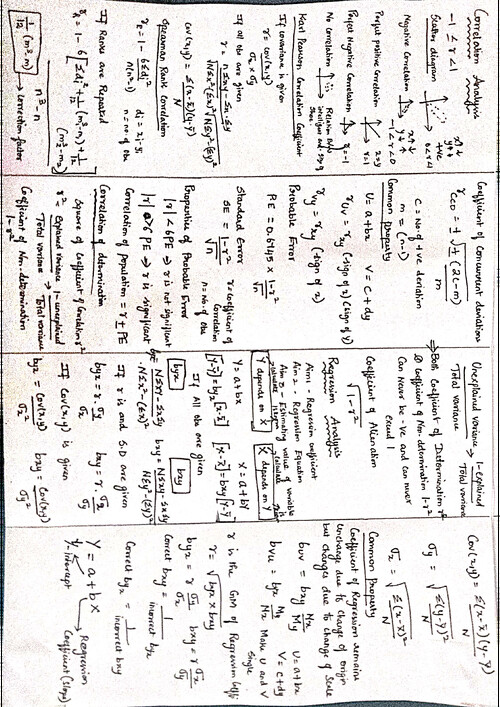 Correlation Analysis
-1 ≤ r ≤ 1
Scatter diagram
x↑ ↓
y↑ ↓
+ve
0 < r < 1
Negative Correlation
x↑ ↓
y↓ ↑
-1 < r < 0
Perfect positive Correlation
x=y
r=1
Perfect Negative Correlation
r=-1
No Correlation
Karl Pearson Correlation Coefficient
If covariance is given
r = cov(x,y)
σx × σy
If all obs are given
r = nΣxy - Σx·Σy
√nΣx²-(Σx)² √nΣy²-(Σy)²
cov(x,y) = Σ(x-x̄)(y-ȳ)
N
Spearman Rank correlation
r = 1 - 6Σdi²
n(n²-1)
n = no of obs
If Ranks are Repeated
r = 1 - 6[Σdi² + 1/12 (m³-m) + 1/12 (m³-m)
n³-n
1/12 (m³-m) → correction factor
Coefficient of Concurrent deviations
r = ± √± (2c-m)
m
c = No of +ve deviation
m = (n-1)
Common Property
U = a+bx V = c+dy
Probable Error
P.E = 0.6745 x 1-r²
√n
Standard Error
SE = 1-r²
√n
r = coefficient of Correlation
n = no of obs
Properties of Probable Error
|r| < 6PE ⇒ r is not significant
|r| > 6 PE ⇒ r is significant
Correlation of population = r ± PE
Correlation of determination
Square of Coefficient of Correlation r²
r² = Explained variance → 1 - unexplained
Total variance Total variance
Coefficient of Non-determination
1-r²
Unexplained variance → 1 - Explained
Total variance Total variance
⇒ Both Coefficient of Determination r²
& Coefficient of Non-determination 1-r²
Can never be -ve and can never
exceed 1
Coefficient of Alienation
√1-r²
Regression Analysis
Aim 1 - Regression coefficient
Aim 2 - Regression Equation
Aim 3 - Estimating value of variable
Y depends on X
X depends on Y
Y = a+bx
x = a+by
[y-ȳ] = byx [x-x̄]
[x-x̄] = bxy [y-ȳ]
If All obs are given
byx
bxy
byx = NΣxy - Σx·Σy
NΣx² - (Σx)²
bxy = NΣxy - Σx·Σy
NΣy² - (Σy)²
If r is and S.D are given
byx = r·σy
σx
bxy = r·σx
σy
If Cov(x,y) is given
byx = Cov(x,y)
σx²
bxy = Cov(x,y)
σy²
Cov(x,y) = Σ(x-x̄)(y-ȳ)
N
σy = √Σ(y-ȳ)²
N
σx = √Σ(x-x̄)²
N
Common Property
Coefficient of Regression remains
unchange due to change of origin
but changes due to change of Scale
U = a+bx
V = c+dy
Make U and V
Single
r is the GM of Regression Coeff
r = √byx × bxy
byx = r σy
σx
bxy = r σx
σy
Correct bxy = 1
incorrect byx
Correct byx = 1
incorrect bxy
Y = a + b x
y-intercept
Regression
Coefficient (slope)